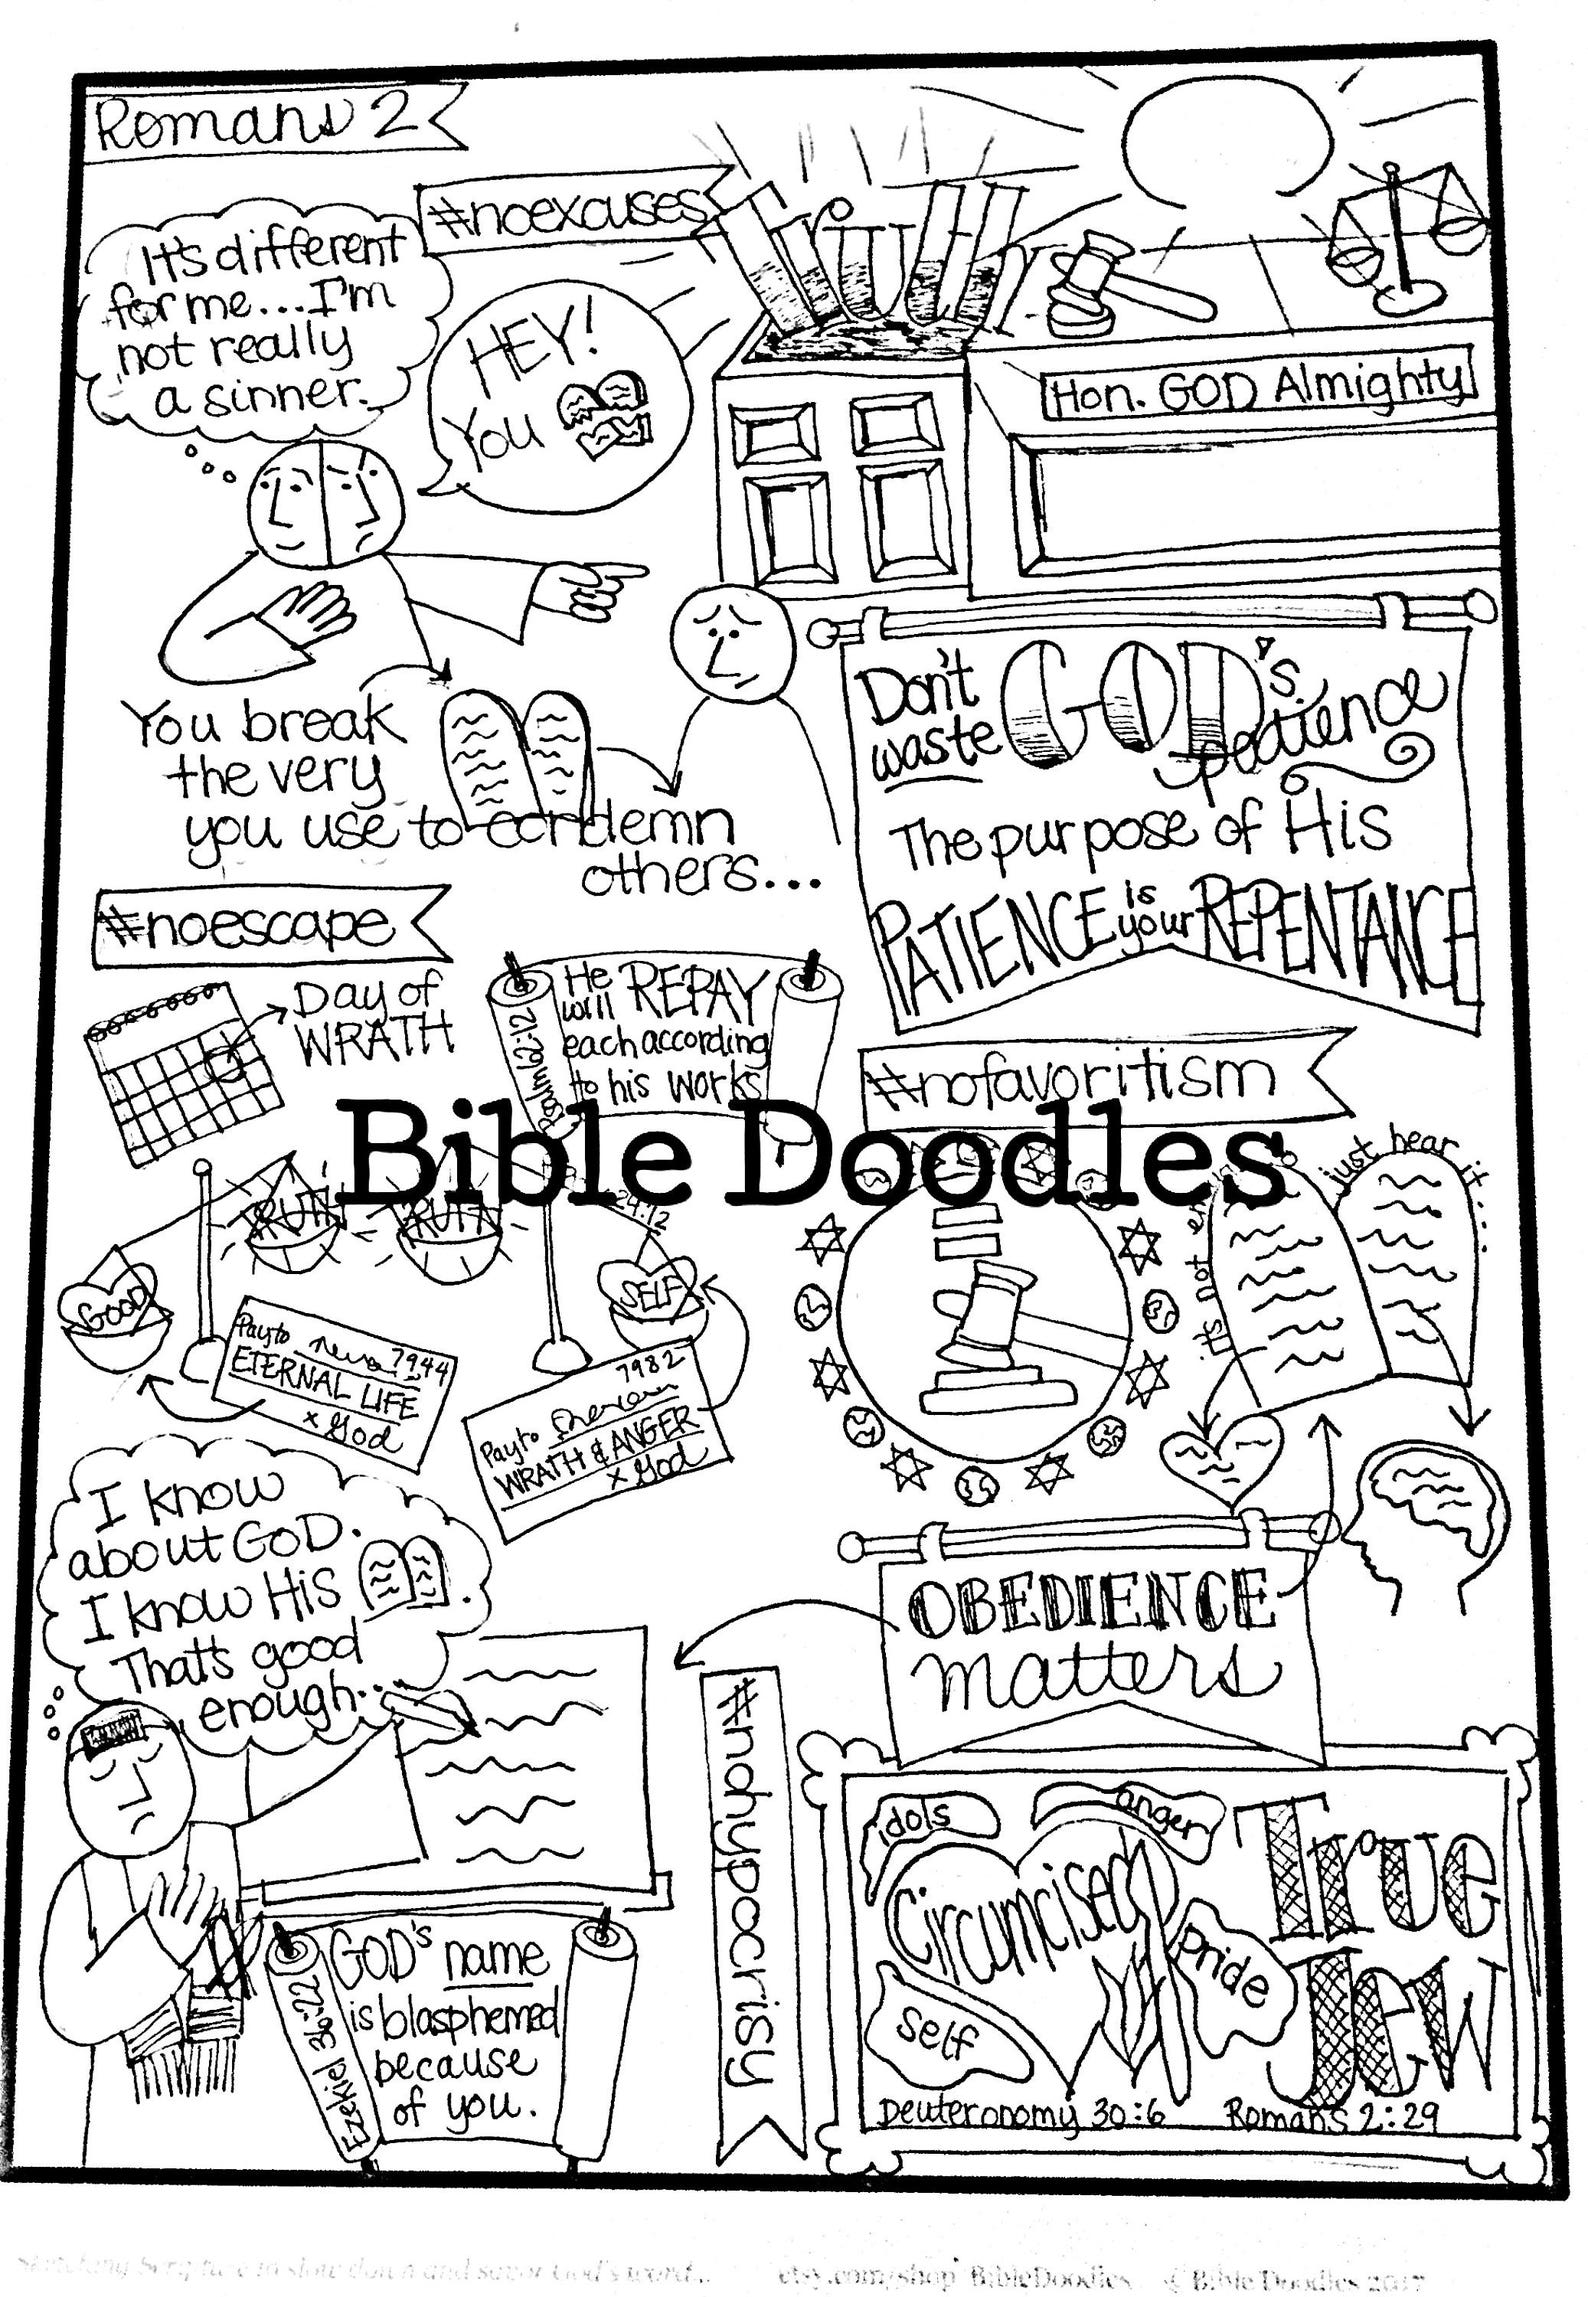 Romans 2
#noexcuses
It's different
for me...I'm
not really
a sinner.
HEY!
You
truth
Hon. GOD Almighty
You break
the very
you use to condemn
others...
Don't
waste
GOD's
patience
The purpose of His
PATIENCE is your REPENTANCE
#noescape
Day of
WRATH
Psalm 62:12
He
will REPAY
each according
to his works
#nofavoritism
Bible Doodles
TRUTH
TRUTH
24:12
GOOD
SELF
Pay to
7944
ETERNAL LIFE
x God
7982
Pay to
WRATH & ANGER
x God
it's not
just hear it....
I know
about GOD.
I know His
.
That's good
enough...
OBEDIENCE
matters
#nohypocrisy
Ezekiel 36:22
GOD's name
is blasphemed
because
of you.
idols
anger
Circumcised
pride
self
True
Jew
Deuteronomy 30:6
Romans 2:29
etsy.com/shop BibleDoodles
© Bible Doodles 2017